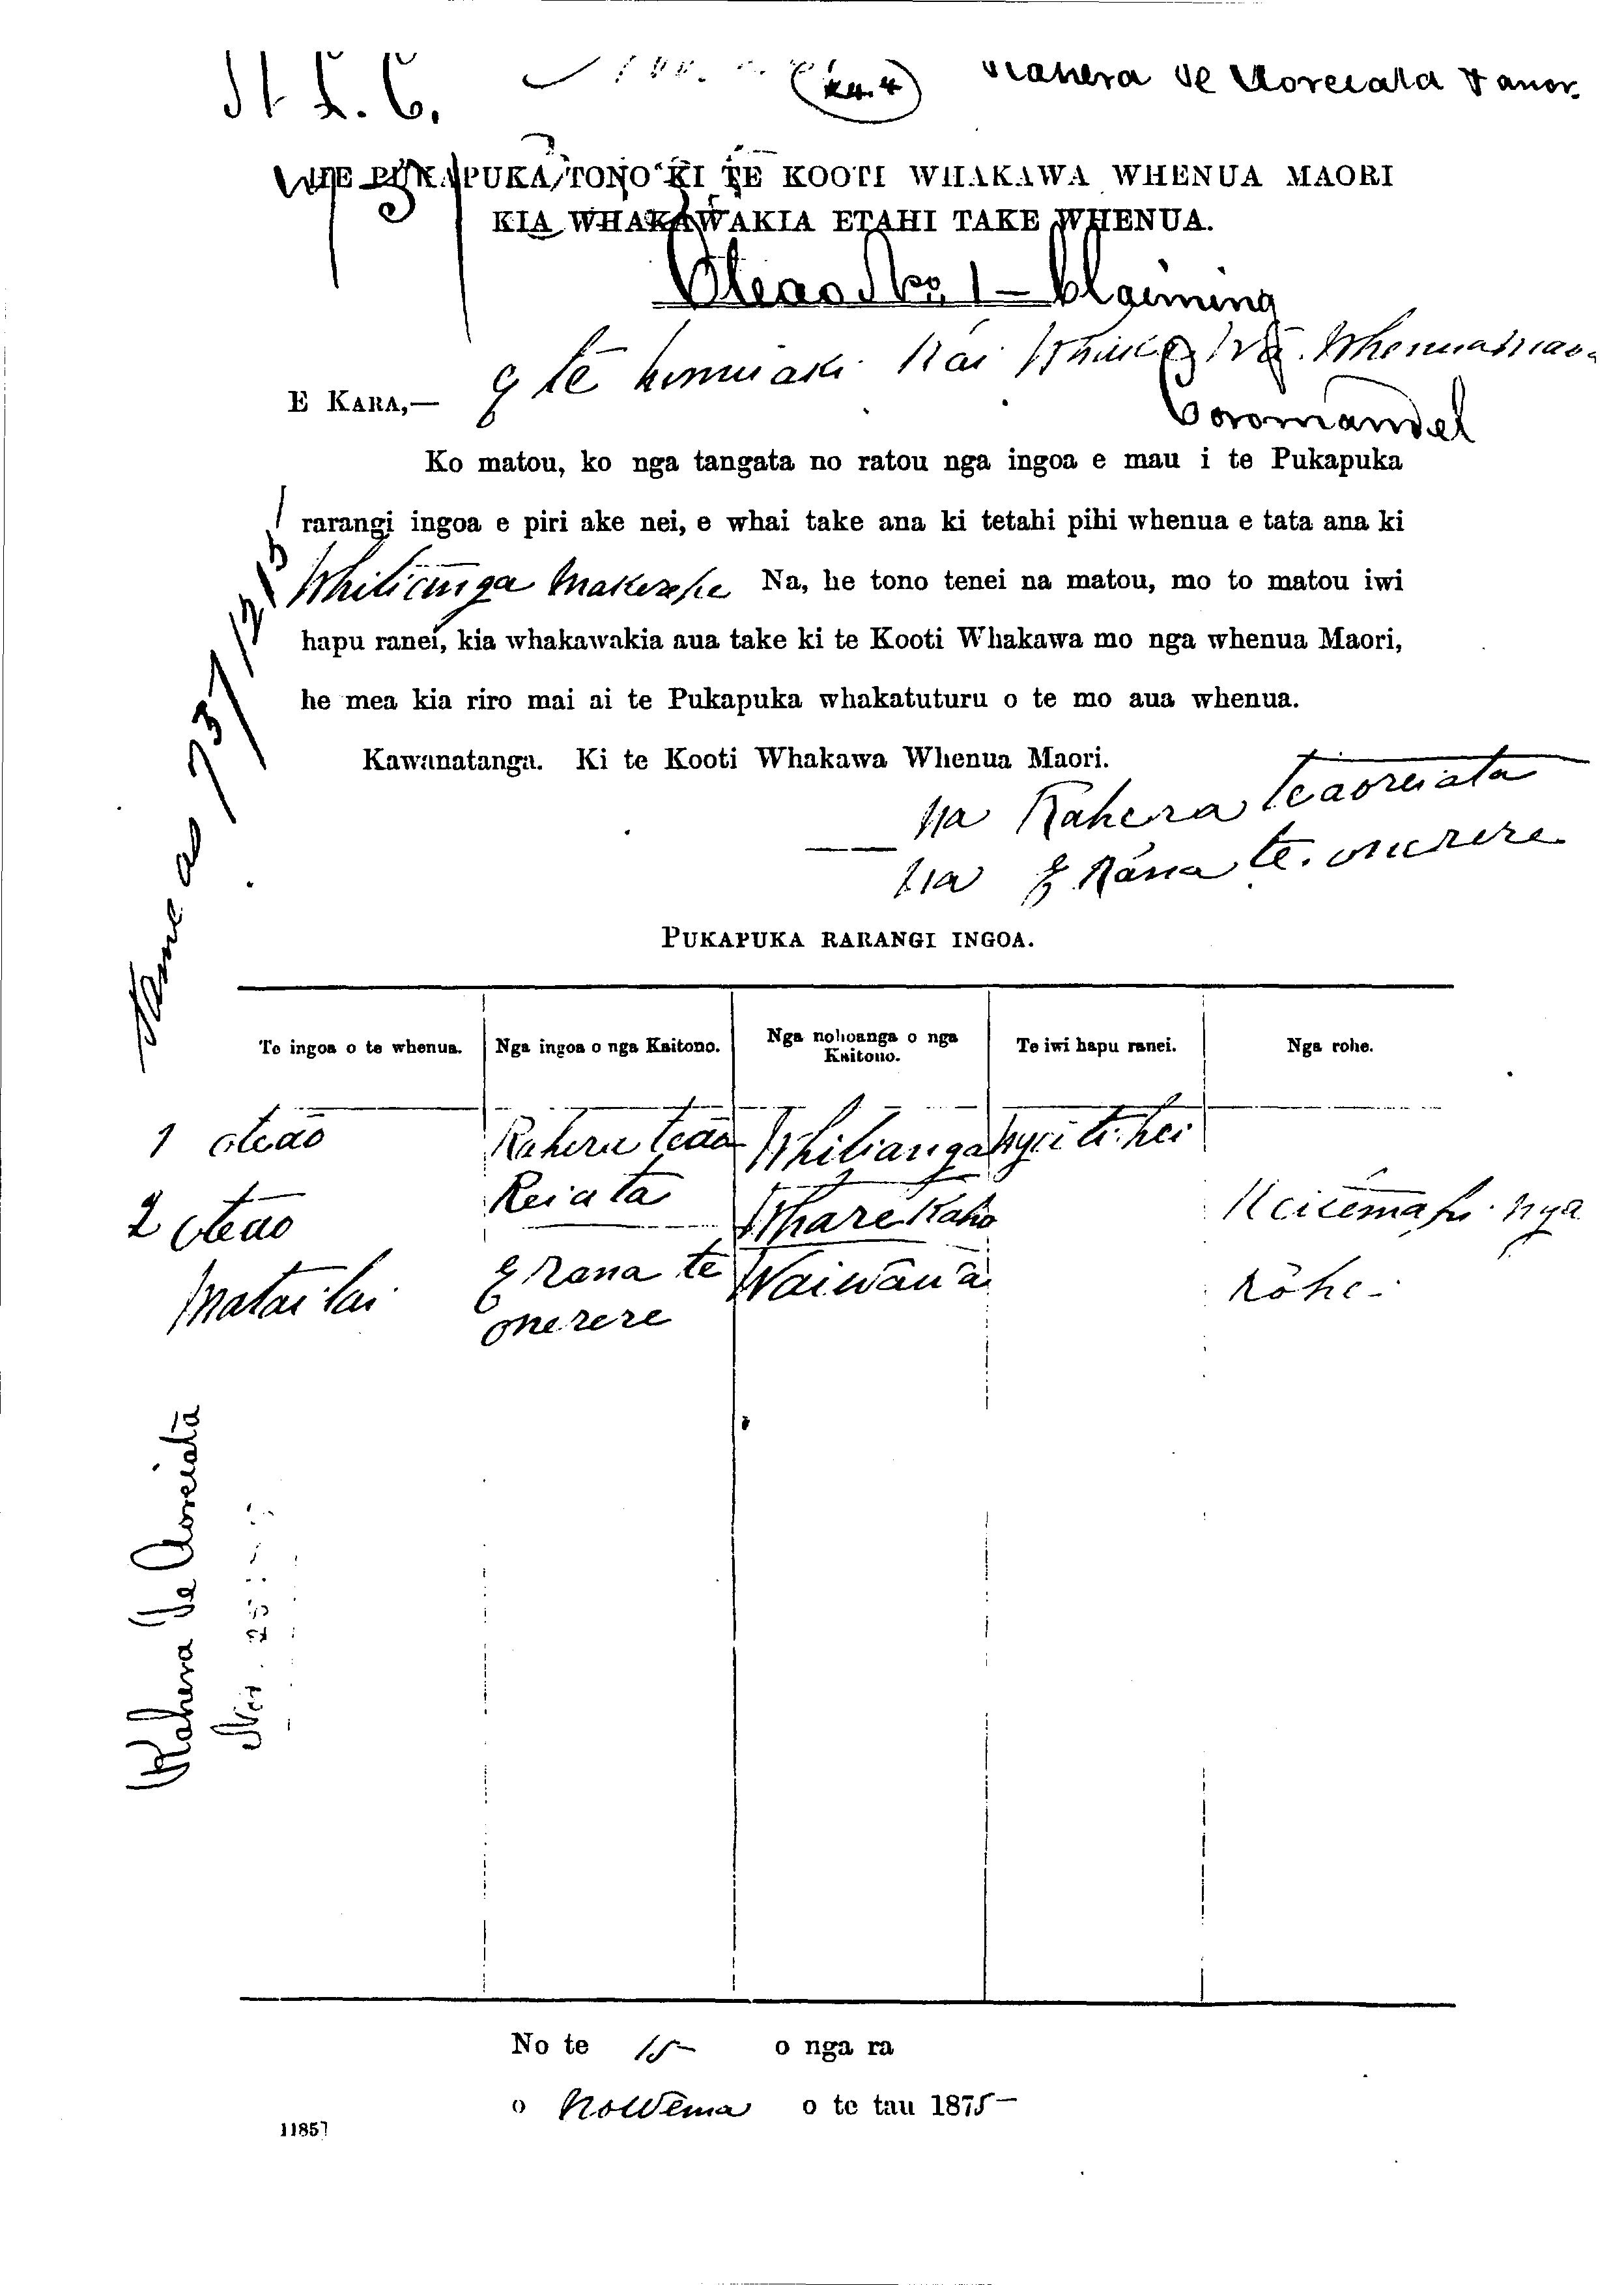 N. L. C.
Rahera Te Aoreiata & anor.
HE PUKAPUKA TONO KI TE KOOTI WHAKAWA WHENUA MAORI
KIA WHAKAWAKIA ETAHI TAKE WHENUA.
Oteao No. 1 — Claiming
E KARA,—
Coromandel
Ko matou, ko nga tangata no ratou nga ingoa e mau i te Pukapuka
rarangi ingoa e piri ake nei, e whai take ana ki tetahi pihi whenua e tata ana ki
Whitianga Na, he tono tenei na matou, mo to matou iwi
hapu ranei, kia whakawakia aua take ki te Kooti Whakawa mo nga whenua Maori,
he mea kia riro mai ai te Pukapuka whakatuturu o te mo aua whenua.
Kawanatanga. Ki te Kooti Whakawa Whenua Maori.
na Rahera teaoreiata
na E Rana te onerere
Same as 75/1215
PUKAPUKA RARANGI INGOA.
Te ingoa o te whenua. Nga ingoa o nga Kaitono. Nga nohoanga o nga Kaitono. Te iwi hapu ranei. Nga rohe.
1 oteao Rahera teao Whitianga ngati hei
2 oteao Reiata Wharekaho Keitemapi nga
Mataitai E Rana te Waiwawa rohe
onerere
Rahera Te Aoreiata
No te 15 o nga ra
o Nowema o te tau 1875
11857